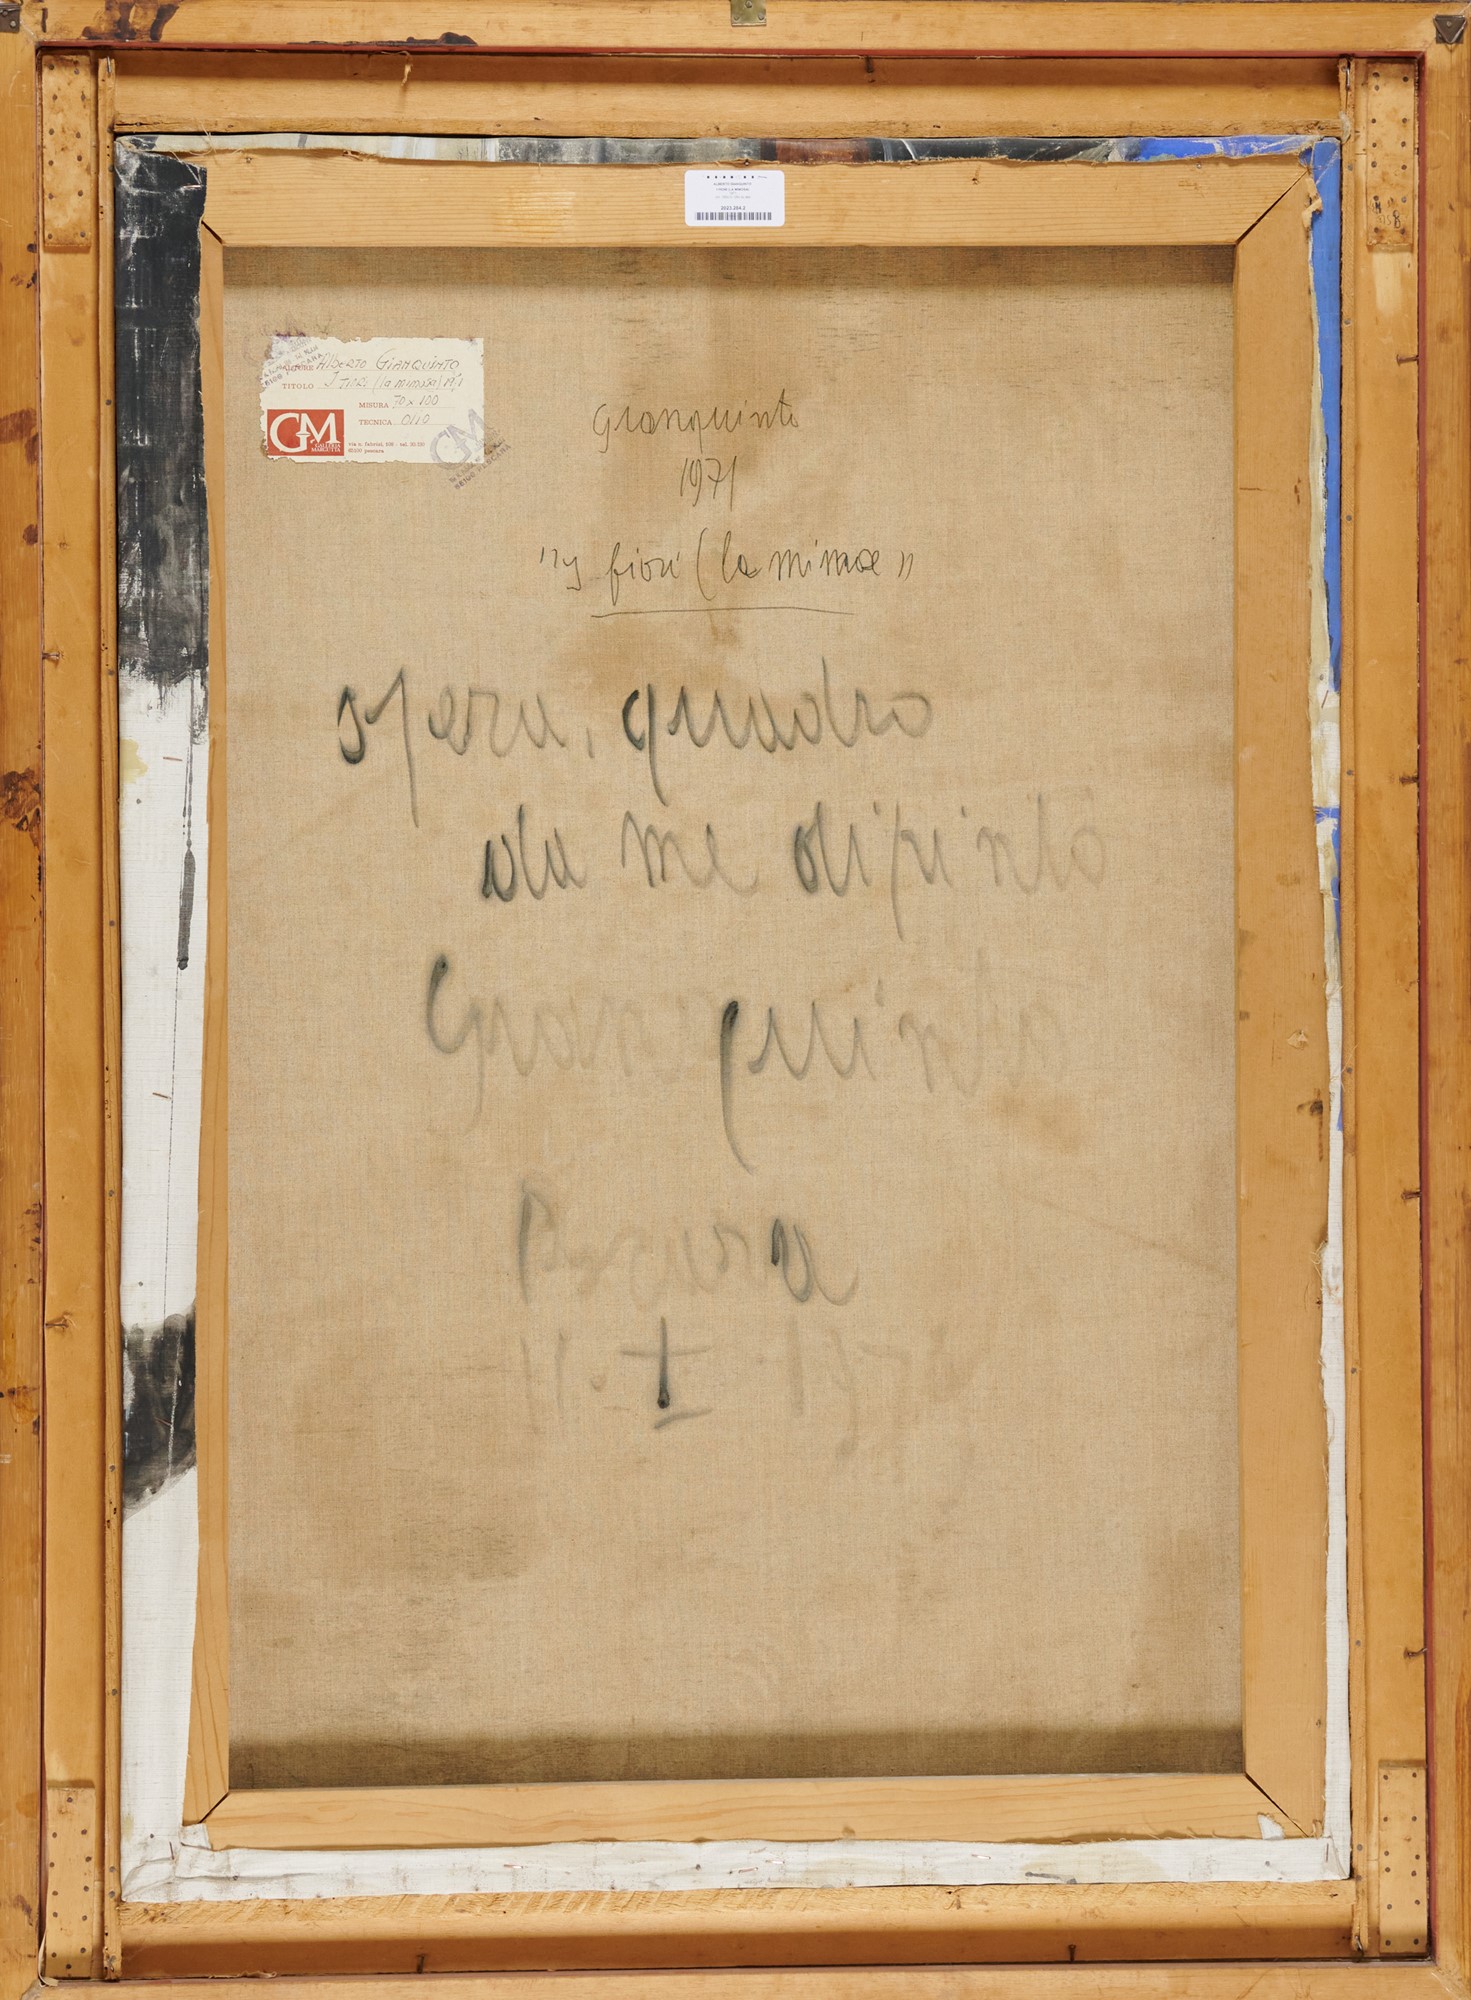 2023.284.2
AUTORE Alberto Gianquinto
TITOLO I Fiori (la mimosa) 1971
MISURA 70 x 100
TECNICA Olio
GM
GALLERIA MARGUTTA
via n. fabrizi,
65100 pescara
GM
65100 PESCARA
Gianquinto
1971
"I fiori (la mimosa"
opera, quadro
da me dipinto
Gianquinto
Pescara
11 - I